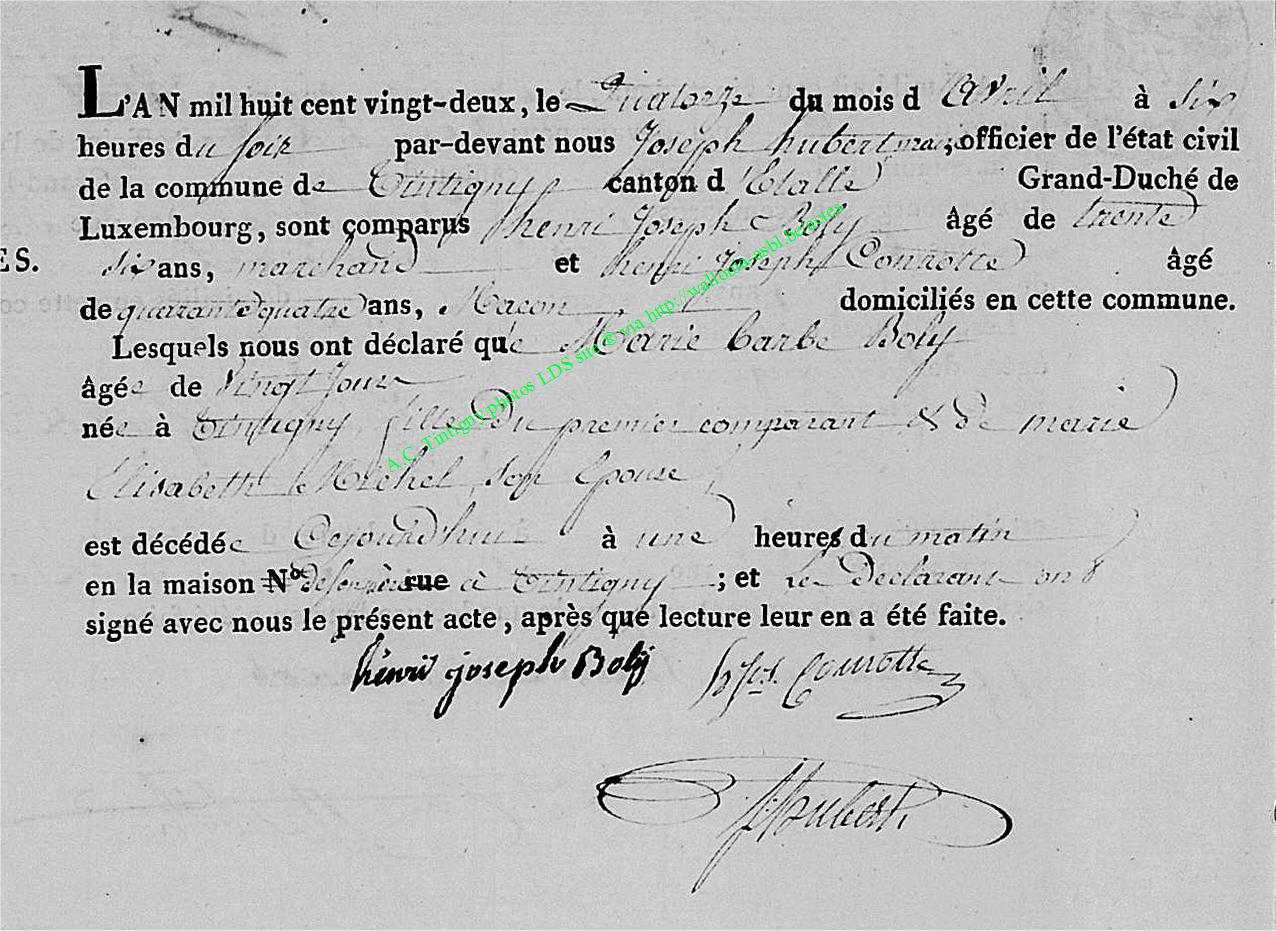 L'AN mil huit cent vingt-deux, le Quatorze du mois d Avril à six
heures du soir par-devant nous Joseph hubert officier de l'état civil
de la commune de Tintigny canton d'Etalle Grand-Duché de
Luxembourg, sont comparus henri Joseph Boly âgé de trente
ES. six ans, marchand et henri Joseph Connotte âgé
de quarante quatre ans, Maçon domiciliés en cette commune.
Lesquels nous ont déclaré que Marie barbe Boly
âgée de vingt jours
née à Tintigny fille du premier comparant & de marie
Elisabeth Michel son Epouse
est décédée Cejourdhui à une heures du matin
en la maison N° rue à Tintigny ; et les Déclarans ont
signé avec nous le présent acte, après que lecture leur en a été faite.
henri joseph Bolÿ hjos. Connotte
Hubert
A.C. Tintigny photos LDS site © via http://wallonia-asbl.be/actes